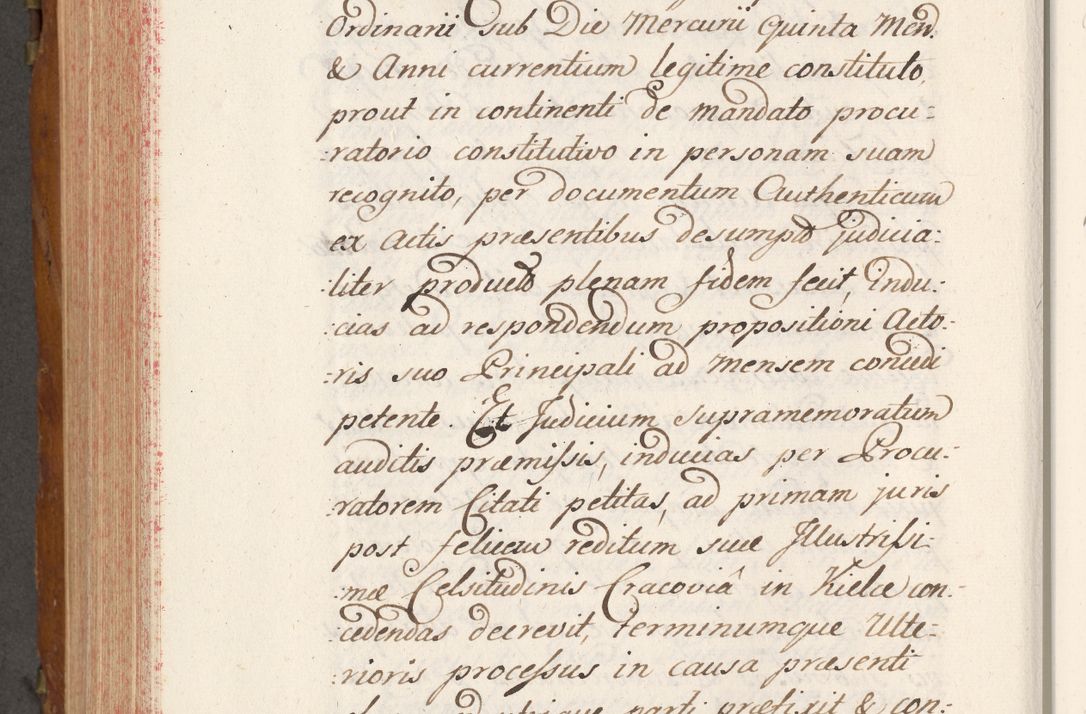 Ordinarii sub Die Mercurii Quinta Men.
& Anni currentium legitime constituto,
prout in continenti de mandato procu:
:ratorio constitutivo in personam suam
recognito, per documentum Authenticum
ex Actis præsentibus desumpto Judicia:
:liter producto plenam fidem fecit, Indu:
:cias ad respondendum propositioni Acto:
:ris suo Principali ad mensem concedi
petente. Et Judicium supramemoratum
auditis præmissis, inducias per Procu:
:ratorem Citati petitas, ad primam juris
post felicem reditum suæ Illustrissi:
:mæ Celsitudinis Cracoviâ in Kielce con:
:cedendas decrevit, terminumque Ulte:
:rioris processus in causa præsenti
utrique parti præfixit & con: